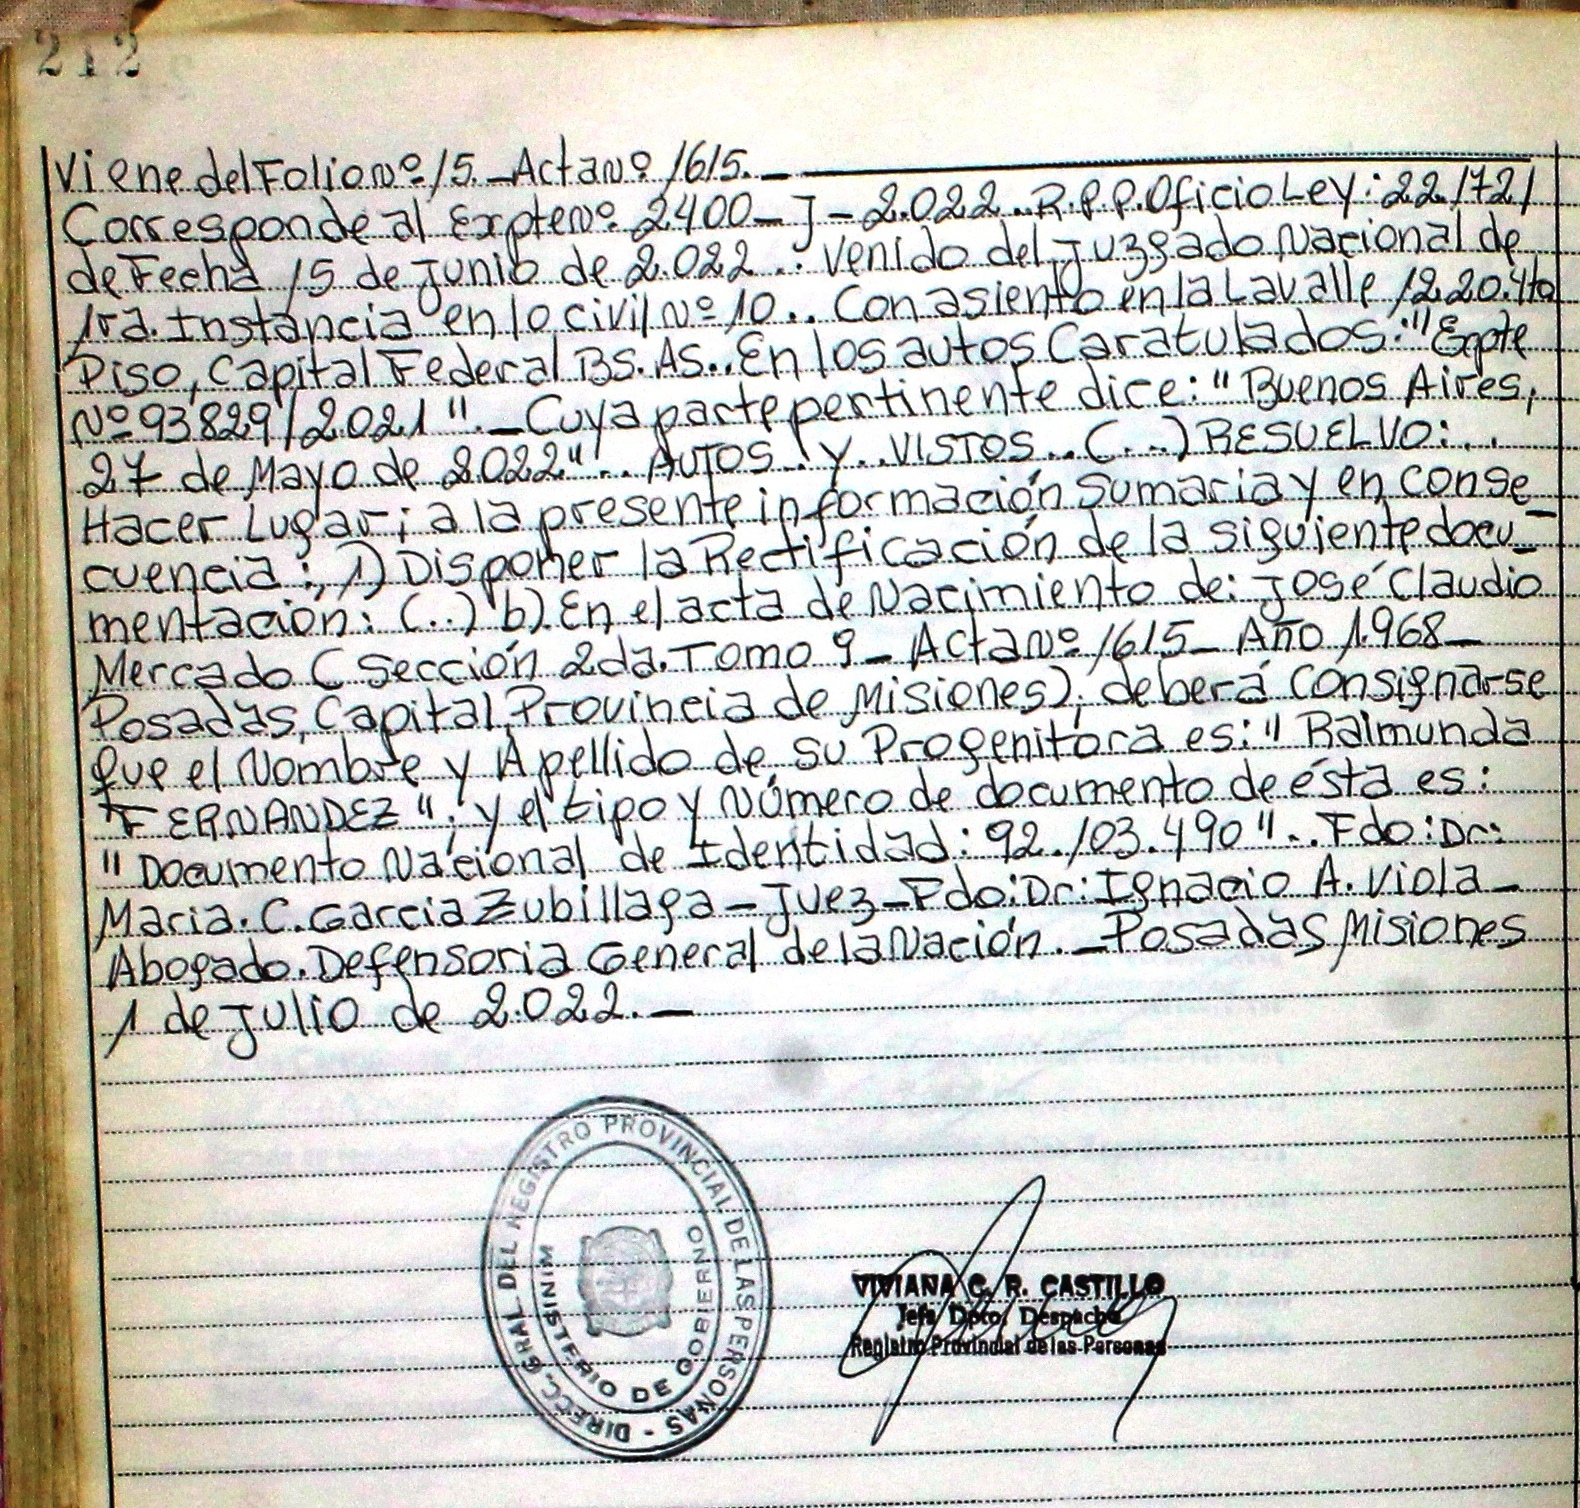 212
Viene del Folio Nº 15._Acta Nº 1615._
Corresponde al Expte Nº. 2400_J_2.022.. R.P.P. Oficio Ley: 22.172/
de Fecha 15 de Junio de 2.022..: Venido del Juzgado Nacional de
1ra. Instancia en lo civil Nº 10.. Con asiento en la Lavalle 12.20.4to
Piso, Capital Federal BS. AS.. En los autos Caratulados: "Expte
Nº 93829/2.021"._Cuya parte pertinente dice: "Buenos Aires,
27 de Mayo de 2022".. AUTOS Y VISTOS.. (...) RESUELVO:..
Hacer Lugar; a la presente información Sumaria y en conse_
cuencia:, 1) Disponer la Rectificación de la siguiente docu_
mentación: (..) b). En el acta de Nacimiento de: José Claudio
Mercado (Sección 2da. Tomo 9_ Acta Nº 1615_ Año 1.968_
Posadas, Capital Provincia de Misiones), deberá Consignarse
que el Nombre y Apellido de su Progenitora es: "Raimunda
FERNANDEZ"; y el tipo y Número de documento de ésta es:
"Documento Nacional de Identidad: 92.103.490".. Fdo: Dr:
Maria. C. Garcia Zubillaga_Juez_Fdo: Dr: Ignacio A. Viola_
Abogado. Defensoria General de la Nación._Posadas Misiones
1 de Julio de 2.022._
DIREC. GRAL. DEL REGISTRO PROVINCIAL DE LAS PERSONAS -
MINISTERIO DE GOBIERNO
VIVIANA C. R. CASTILLO
Jefa Dpto. Despacho
Registro Provincial de las Personas